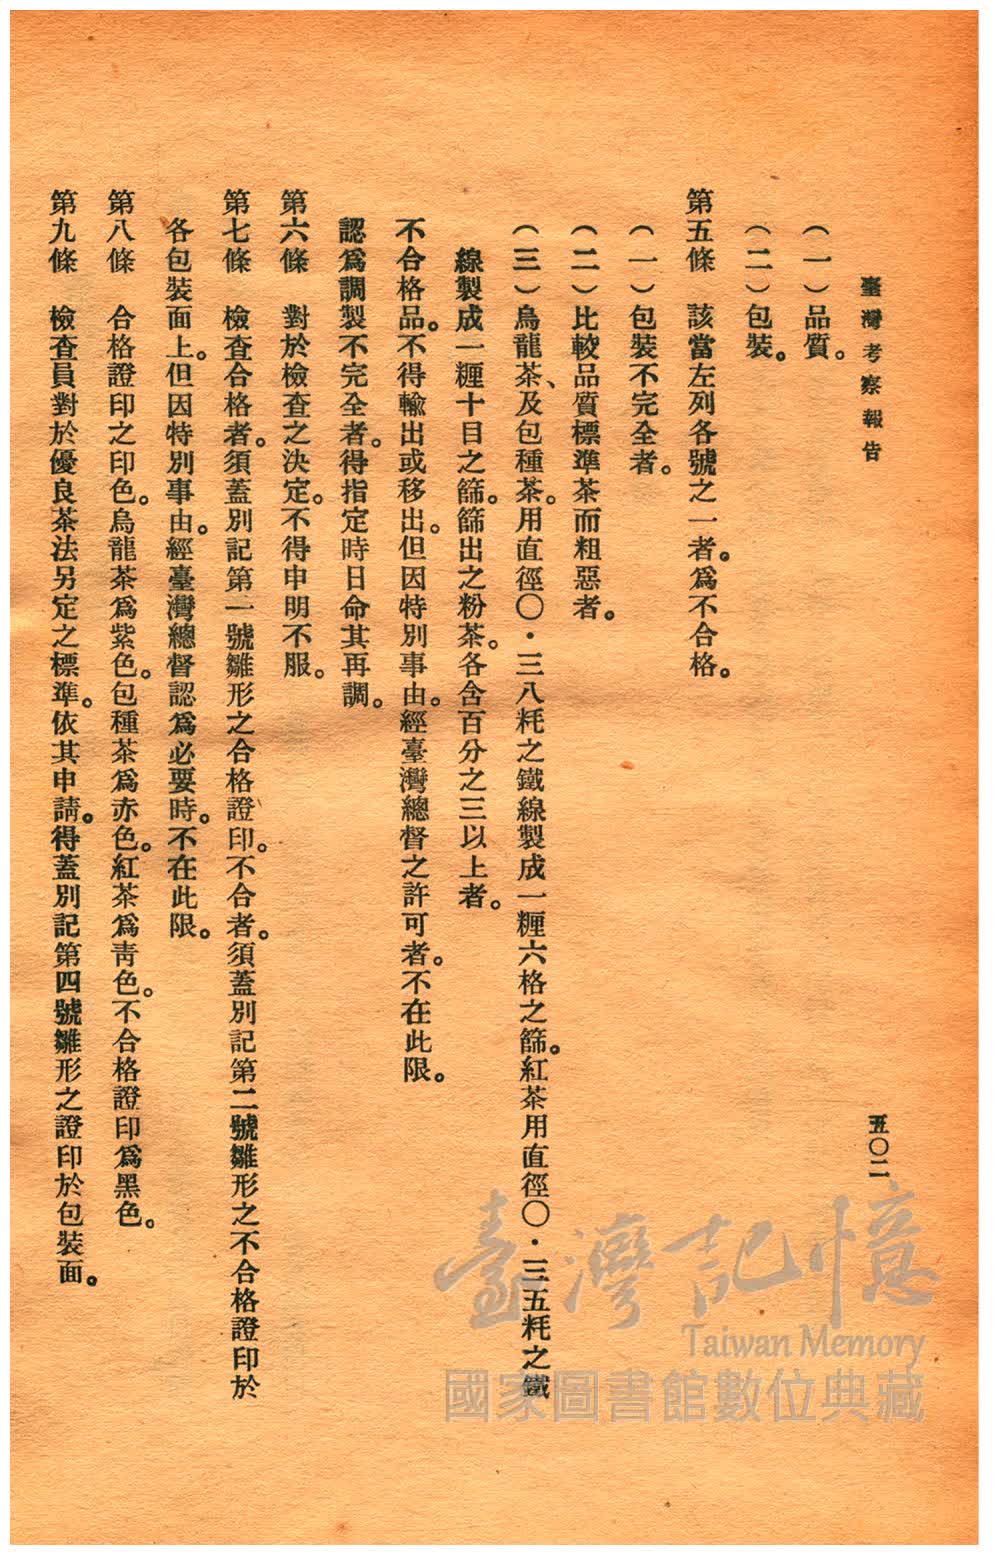 臺灣考察報告
五〇二
（一）品質。
（二）包裝。
第五條　該當左列各號之一者。爲不合格。
（一）包裝不完全者。
（二）比較品質標準茶而粗惡者。
（三）烏龍茶、及包種茶。用直徑〇・三八粍之鐵線製成一糎六格之篩。紅茶用直徑〇・三五粍之鐵
線製成一糎十目之篩。篩出之粉茶。各含百分之三以上者。
不合格品。不得輸出或移出。但因特別事由。經臺灣總督之許可者。不在此限。
認爲調製不完全者。得指定時日命其再調。
第六條　對於檢查之決定。不得申明不服。
第七條　檢查合格者。須蓋別記第一號雛形之合格證印。不合者。須蓋別記第二號雛形之不合格證印於
各包裝面上。但因特別事由。經臺灣總督認爲必要時。不在此限。
第八條　合格證印之印色。烏龍茶爲紫色。包種茶爲赤色。紅茶爲靑色。不合格證印爲黑色。
第九條　檢查員對於優良茶法另定之標準。依其申請。得蓋別記第四號雛形之證印於包裝面。
臺灣記憶
Taiwan Memory
國家圖書館數位典藏